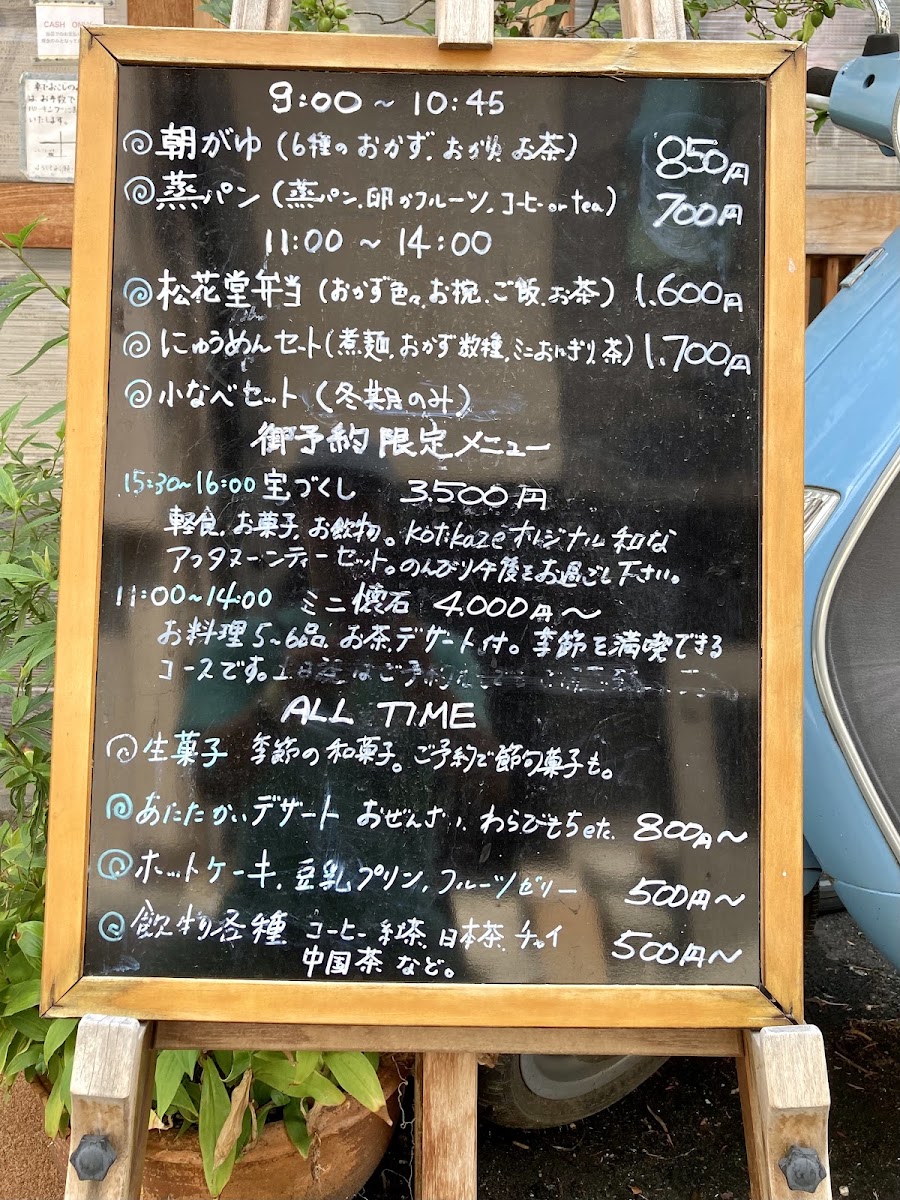 CASH ONLY
9:00 ~ 10:45
朝がゆ (6種のおかず、おかゆ、お茶) 850円
蒸パン (蒸パン、卵かフルーツ、コーヒー or tea) 700円
11:00 ~ 14:00
松花堂弁当 (おかず色々、お椀、ご飯、お茶) 1,600円
にゅうめんセット (煮麺、おかず数種、ミニおにぎり、茶) 1,700円
小なべセット (冬期のみ)
御予約限定メニュー
15:30~16:00 宝づくし 3,500円
軽食、お菓子、お飲物。kotikazeオリジナル和な
アフタヌーンティーセット。のんびり午後をお過ごし下さい。
11:00~14:00 ミニ懐石 4,000円~
お料理5~6品、お茶、デザート付。季節を満喫できる
コースです。
ALL TIME
生菓子 季節の和菓子。ご予約で節句菓子も。
あたたかいデザート おぜんざい、わらびもちetc. 800円~
ホットケーキ、豆乳プリン、フルーツゼリー 500円~
飲物各種 コーヒー、紅茶、日本茶、チャイ 500円~
中国茶 など。